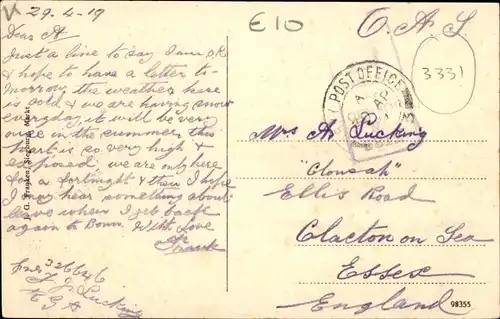 29-4-19
E10
O.A.S
3331
Dear A
Just a line to say I am OK
& hope to have a letter to-
morrow, the weather here
is cold & we are having snow
everyday it will be very
nice in the summer, this
part is so very high &
exposed, we are only here
for a fortnight & then I hope
I may hear something about
leave when I get back
again to Bonn. With Love
Frank
326646
F. J. Lucking
R G A
POST OFFICE
AP
Mrs A. Lucking
"Clonsah"
Ellis Road
Clacton on Sea
Essex
England
98355